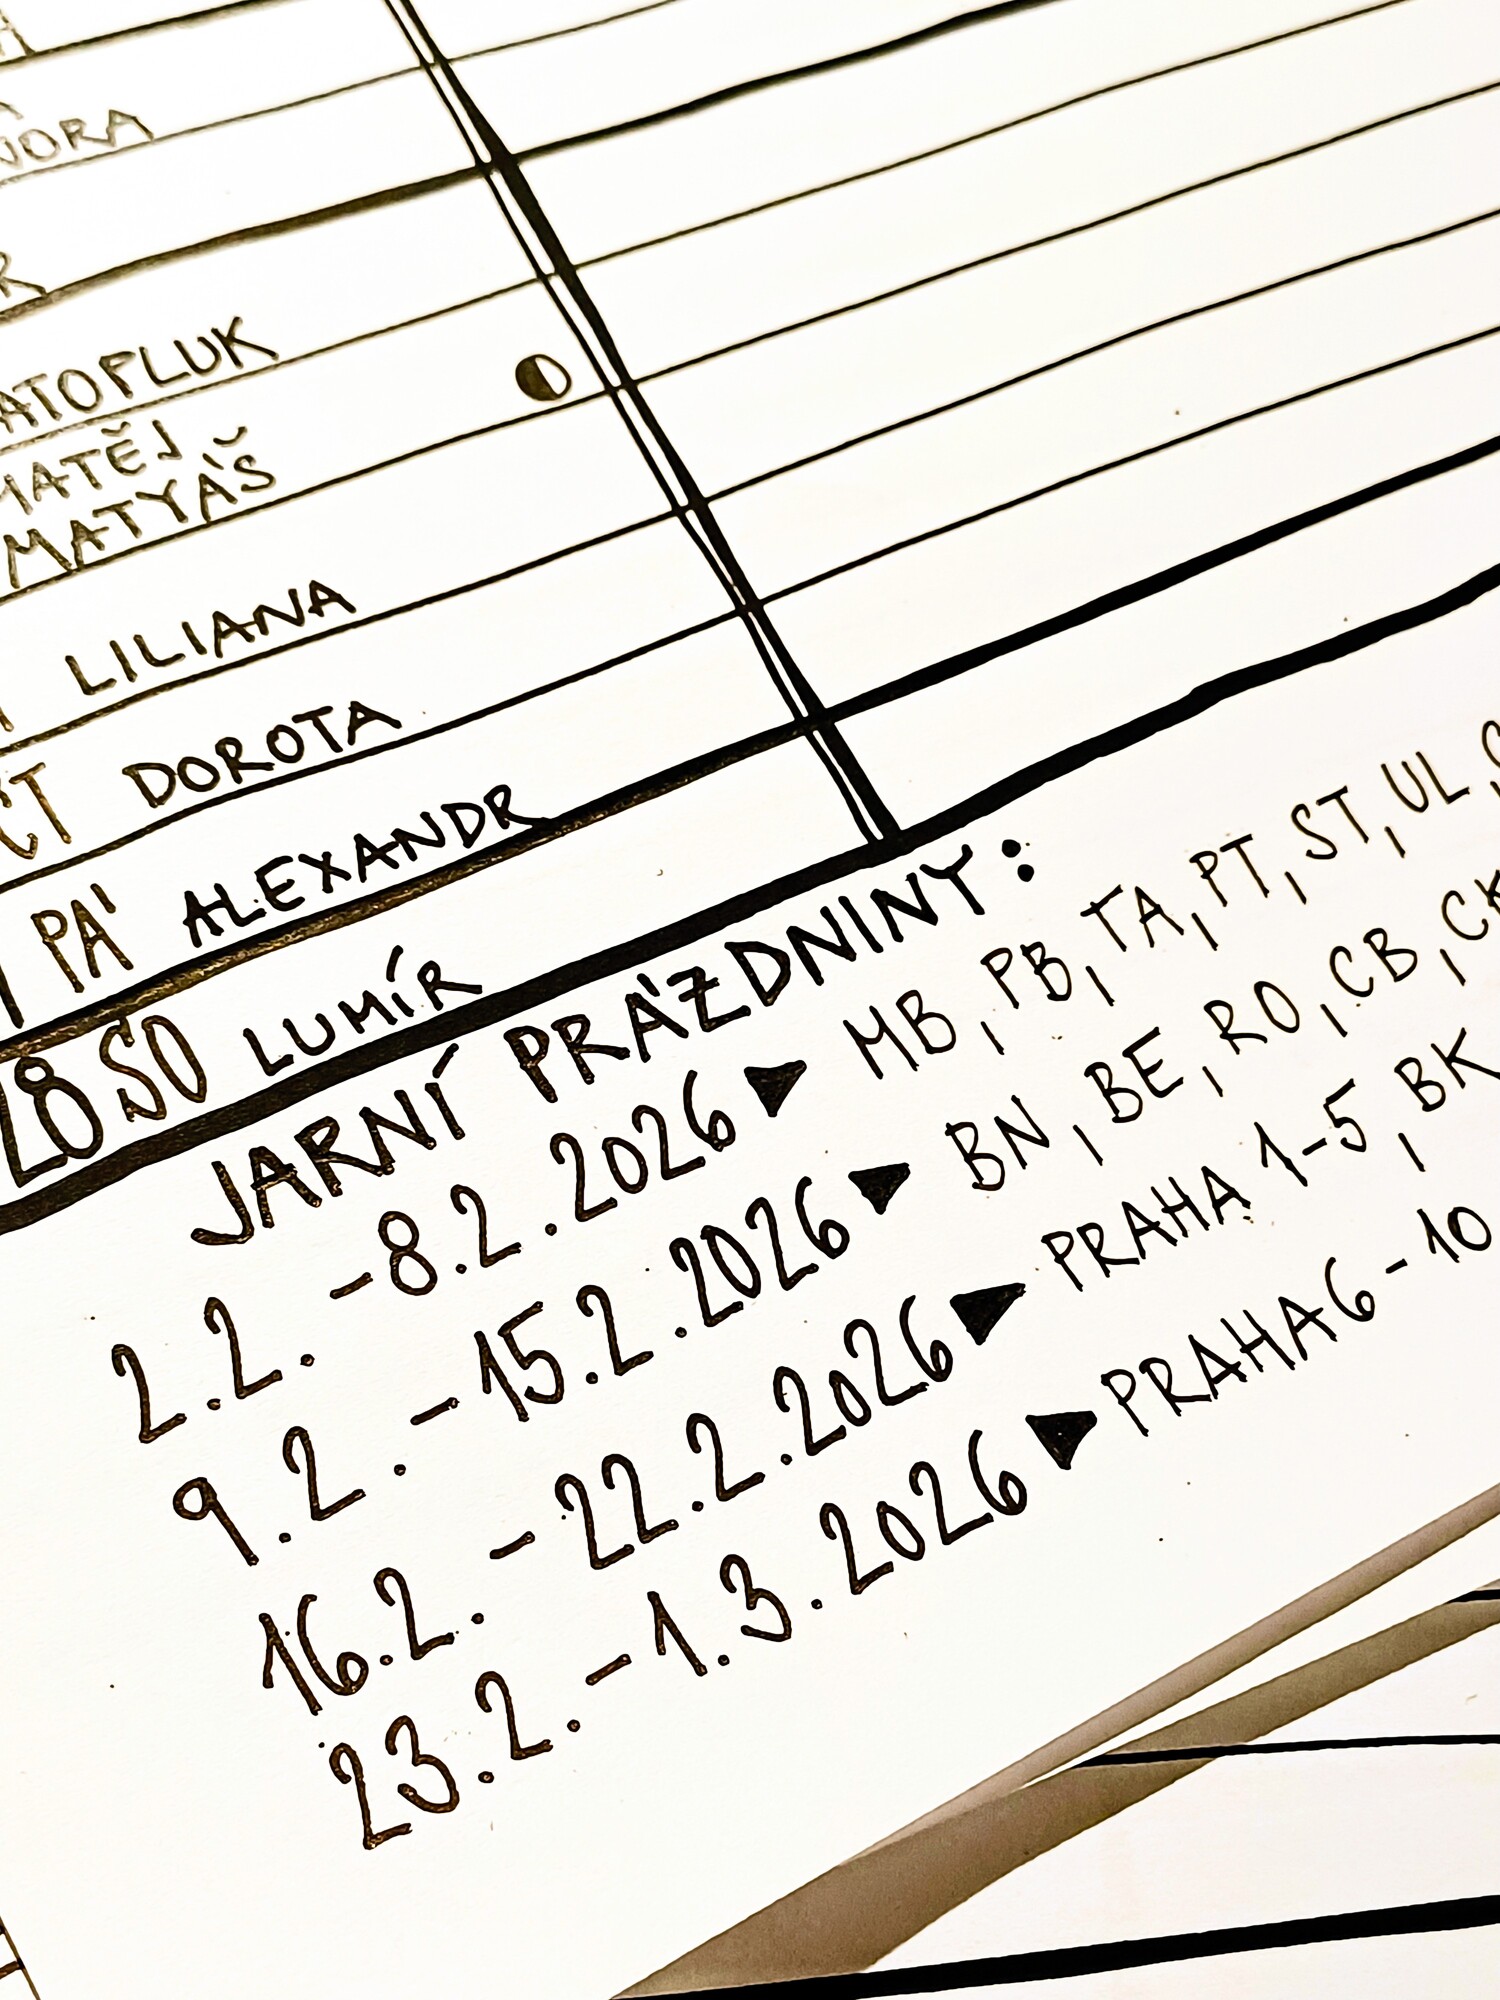 ATOPLUK
MATĚJ
MATYÁŠ
LILIANA
ČT DOROTA
PÁ ALEXANDR
28 SO LUMÍR
JARNÍ PRÁZDNINY:
2.2. -8.2.2026 ▶ MB, PB, TA, PT, ST, UL,
9.2. -15.2.2026 ▶ BN, BE, RO, CB, CK
16.2. -22.2.2026 ▶ PRAHA 1-5, BK
23.2. -1.3.2026 ▶ PRAHA 6-10